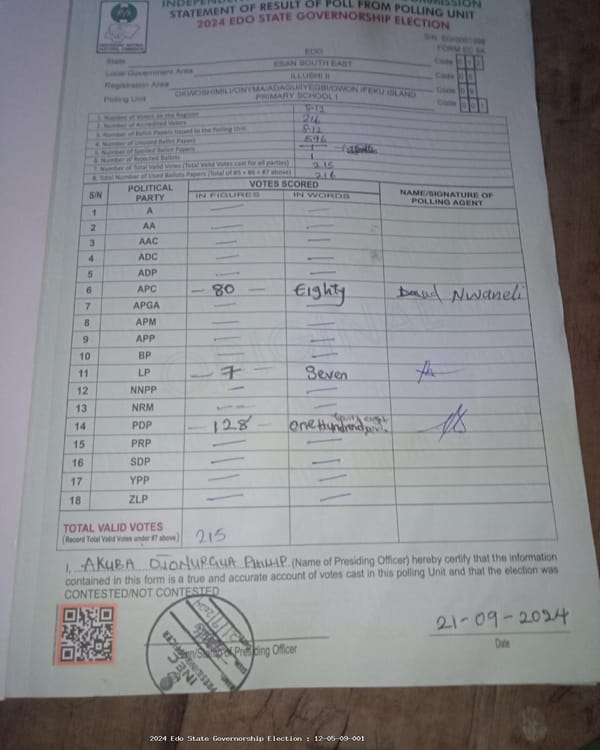 STATEMENT OF RESULT OF POLL FROM POLLING UNIT
2024 EDO STATE GOVERNORSHIP ELECTION
FORM EC 8A
State EDO Code
Local Government Area ESAN SOUTH EAST Code
Registration Area ILLUSHI II Code
Polling Unit OKWOSHIMILI/ONYMA/ADAGU/IYEGBI/OWON IFEKU ISLAND PRIMARY SCHOOL I Code
1. Number of Voters on the Register
2. Number of Accredited Voters 216
3. Number of Ballot Papers Issued to the Polling Unit
4. Number of Unused Ballot Papers
5. Number of Spoiled Ballot Papers
6. Number of Rejected Ballots 1
7. Number of Total Valid Votes (Total Valid Votes cast for all parties) 215
8. Total Number of Used Ballots Papers (Total of #5 + #6 + #7 above) 216
S/N POLITICAL PARTY VOTES SCORED NAME/SIGNATURE OF POLLING AGENT
IN FIGURES IN WORDS
1 A
2 AA
3 AAC
4 ADC
5 ADP
6 APC - 80 - Eighty David Nwaneli
7 APGA
8 APM
9 APP
10 BP
11 LP - 7 - Seven
12 NNPP
13 NRM
14 PDP - 128 - One Hundred
15 PRP
16 SDP
17 YPP
18 ZLP
TOTAL VALID VOTES
(Record Total Valid Votes under #7 above) 215
I, AKUBA PHILIP (Name of Presiding Officer) hereby certify that the information
contained in this form is a true and accurate account of votes cast in this polling Unit and that the election was
CONTESTED/NOT CONTESTED
INEC
Sign/Stamp of Presiding Officer
21-09-2024
Date
2024 Edo State Governorship Election : 12-05-09-001